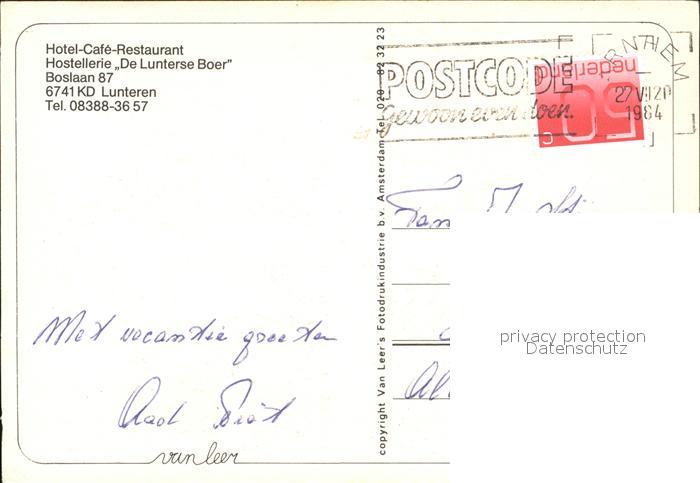 Hotel-Café-Restaurant
Hostellerie „De Lunterse Boer”
Boslaan 87
6741 KD Lunteren
Tel. 08388-36 57
POSTCODE
gewoon even doen.
ARNHEM
27 VII 20
1984
nederland
50
c
copyright Van Leer's Fotodrukindustrie b.v. Amsterdam Tel. 020 - 82 32 23
Fam
Met vacantie groeten
Aad
van leer
privacy protection
Datenschutz